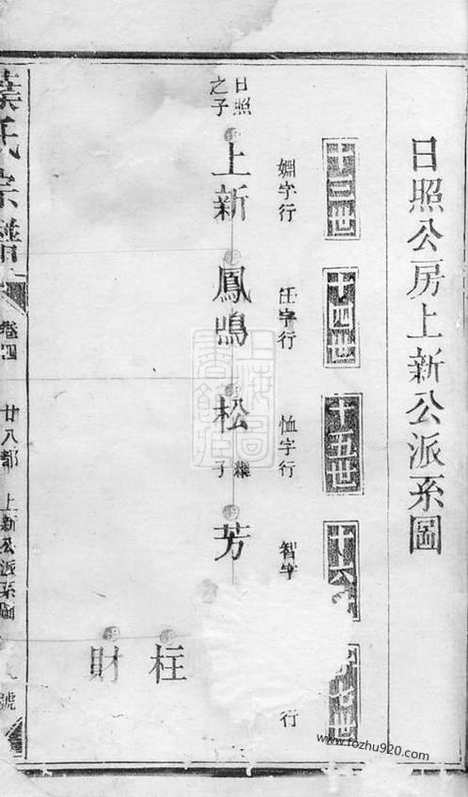 日照公房上新公派系圖
十三世
十四世
十五世
十六
七世
姻字行
任字行
恤字行
智字
行
日照
之子
上新
鳳鳴
松
子
芳
柱
財
葉氏宗譜
卷四
廿八都
上新公派系圖
號
www.fozhu920.com